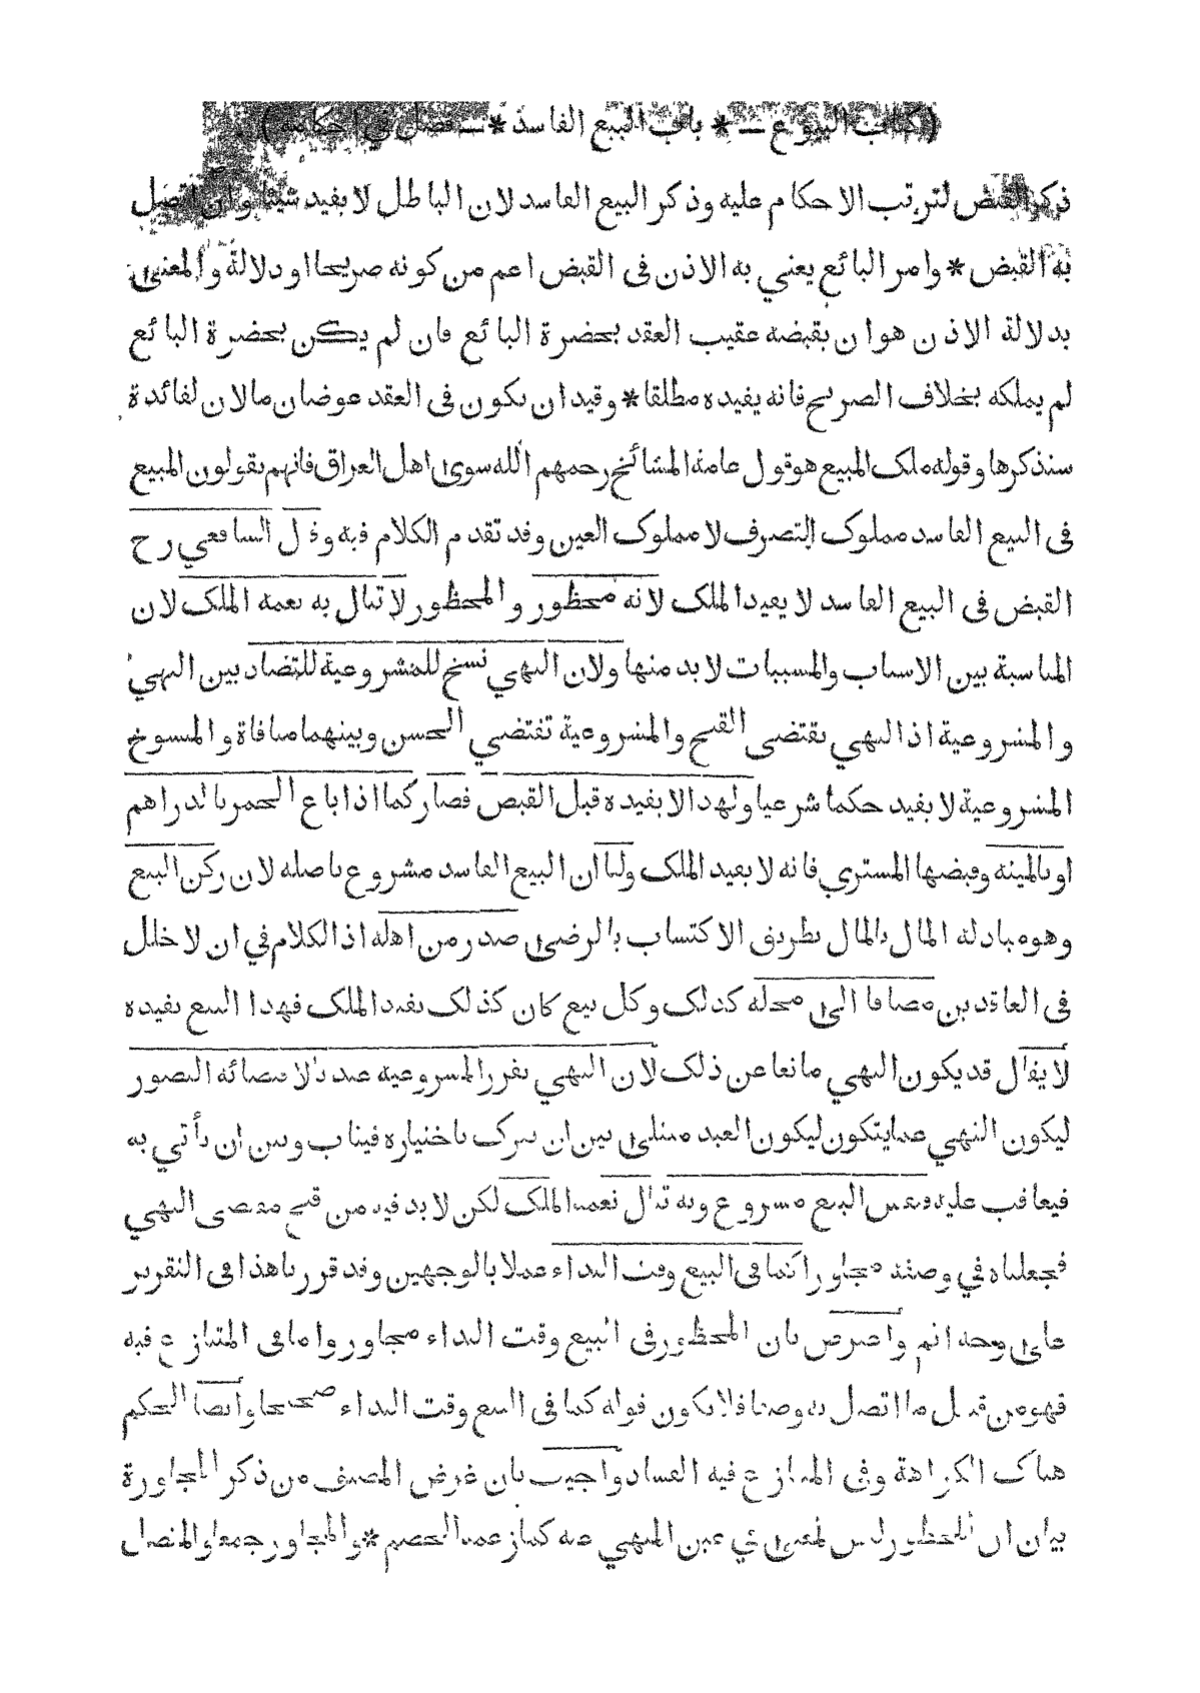 ( كتاب البيوع — * باب البيع الفاسد * — فصل في احكامه )
ذكر القبض لترتب الاحكام عليه وذكر البيع الفاسد لان الباطل لا يفيد شيئا وان اتصل
به القبض * وامر البائع يعني به الاذن فى القبض اعم من كونه صريحا او دلالة والمعنى
بدلالة الاذن هو ان يقبضه عقيب العقد بحضرة البائع فان لم يكن بحضرة البائع
لم يملكه بخلاف الصريح فانه يفيده مطلقا * وقيد ان يكون فى العقد عوضان مالان لفائدة
سنذكرها وقوله ملك المبيع هو قول عامة المشائخ رحمهم الله سوى اهل العراق فانهم يقولون المبيع
فى البيع الفاسد مملوك التصرف لا مملوك العين وقد تقدم الكلام فيه وقال الشافعي رح
القبض فى البيع الفاسد لا يفيد الملك لانه محظور والمحظور لا تنال به نعمة الملك لان
المناسبة بين الاسباب والمسببات لا بد منها ولان النهي نسخ للمشروعية للتضاد بين النهي
والمشروعية اذ النهي يقتضى القبح والمشروعية تقتضي الحسن وبينهما منافاة والمنسوخ
المشروعية لا يفيد حكما شرعيا ولهذا لا يفيده قبل القبض فصار كما اذا باع الخمر بالدراهم
او بالميتة وقبضها المشتري فانه لا يفيد الملك ولنا ان البيع الفاسد مشروع باصله لان ركن البيع
وهو مبادلة المال بالمال بطريق الاكتساب بالرضى صدر من اهله اذ الكلام في ان لا خلل
فى العاقدين مضافا الى محله كذلك وكل بيع كان كذلك يفيد الملك فهذا البيع يفيده
لا يقال قد يكون النهي مانعا عن ذلك لان النهي يقرر المشروعية عندنا لاقتضائه التصور
ليكون النهي عما يتكون ليكون العبد مبتلى بين ان يترك باختياره فيثاب وبين ان يأتي به
فيعاقب عليه فنفس البيع مشروع وبه تنال نعمة الملك لكن لا بد فيه من قبح مقتضى النهي
فجعلناه في وصفه مجاورا كما فى البيع وقت النداء عملا بالوجهين وقد قررنا هذا فى التقرير
على وجه اتم واعترض بان المحظور فى البيع وقت النداء مجاور واما فى المتنازع فيه
فهو من قبيل ما اتصل به وصفا فلا يكون قوله كما فى البيع وقت النداء صحيحا وايضا الحكم
هناك الكراهة وفى المتنازع فيه الفساد واجيب بان غرض المصنف من ذكر المجاورة
بيان ان المحظور ليس لمعنى في عين المنهي عنه كما زعمه الخصم * والمجاور جمعا والمتصل